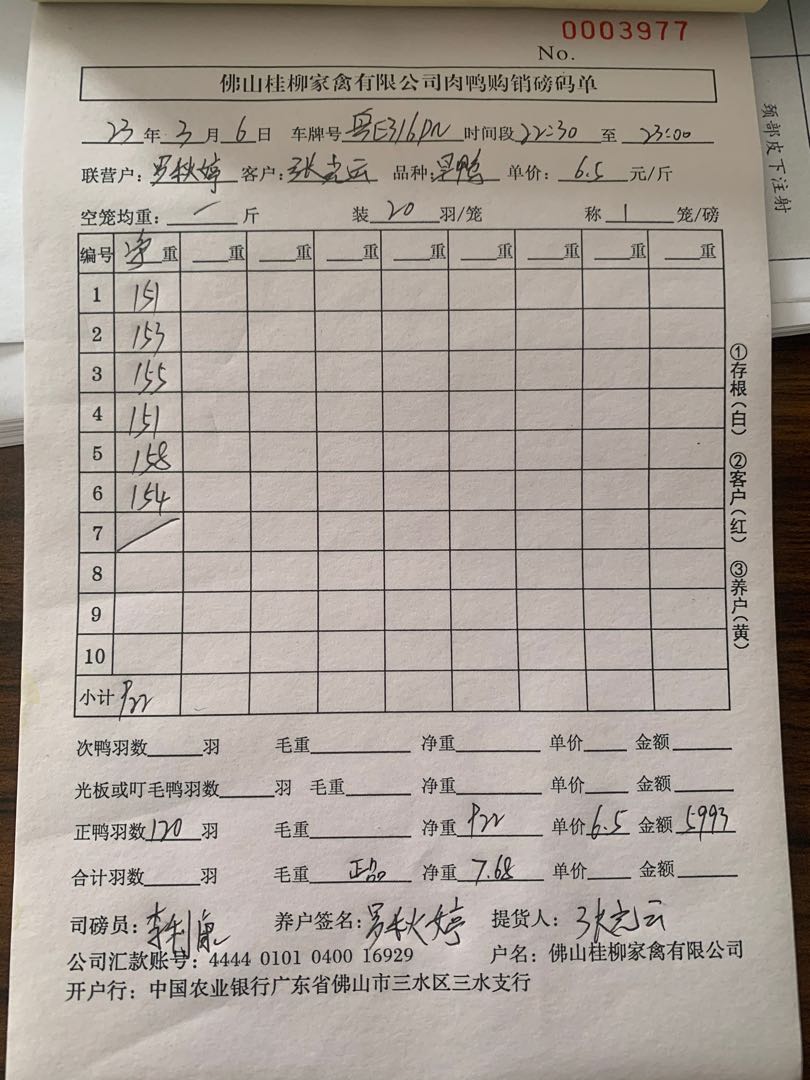 0003977
No.
佛山桂柳家禽有限公司肉鸭购销磅码单
23年3月6日 车牌号粤E316DN时间段22:30至23:00
联营户：罗秋婷 客户：张光云 品种：旱鸭 单价：6.5元/斤
空笼均重：/斤 装20羽/笼 称1笼/磅
编号 净重 重 重 重 重 重 重 重 重
1 151
2 153
3 155
4 151
5 158
6 154
7 /
8
9
10
小计 922
次鸭羽数 羽 毛重 净重 单价 金额
光板或叮毛鸭羽数 羽 毛重 净重 单价 金额
正鸭羽数120羽 毛重 净重922 单价6.5 金额5993
合计羽数 羽 毛重 正品 净重7.68 单价 金额
司磅员： 养户签名：罗秋婷 提货人：张光云
公司汇款账号：4444 0101 0400 16929 户名：佛山桂柳家禽有限公司
开户行：中国农业银行广东省佛山市三水区三水支行
①存根（白） ②客户（红） ③养户（黄）
颈部皮下注射